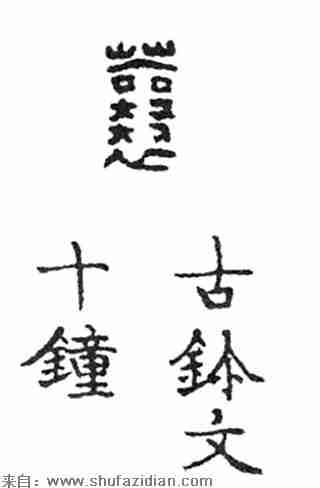 古鉨文
十鐘
来自：www.shufazidian.com